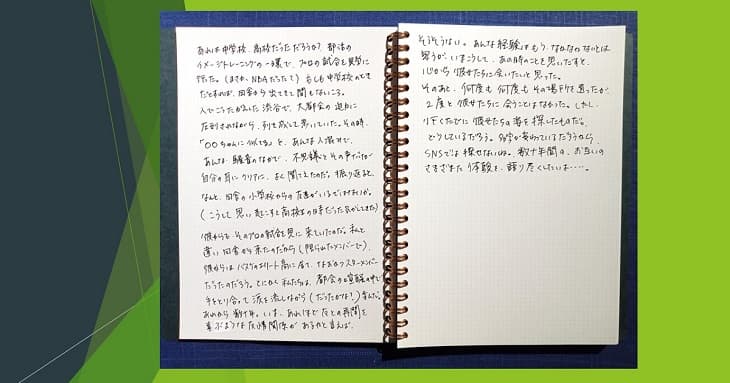 あれは中学校、高校だっただろうか？ 部活の
イメージトレーニングの一環で、プロの試合を見学に
行った。(まさか、NBAだったっけ?) もしも中学校のとき
だとすれば、田舎から出てきて間もないころ。
人でごったがえした渋谷で、大都会の迫力に
圧倒されながら、列を成して歩いていた。その時、
「〇〇ちゃんに似てる」と、あんな人混みで、
あんな騒音のなかで、不思議とその声だけが
自分の耳にクリアに、よく聞こえたのだ。振り返ると、
なんと、田舎の小学校からの友達がいるではないか。
(こうして思い起こすと高校生の時だった気がしてきた)
彼女らも、そのプロの試合を見に来ていたのだ。私と
違い田舎から来たのだから(限られたメンバーで)、
彼女らはバスケのエリート高に居て、なおかつスターメンバー
だったのだろう。とにかく私たちは、都会の喧騒の中で
手をとり合って涙を流しながら(だったかな!)喜んだ。
あれから数十年。いま、あれほど友との再開を
喜ぶような友情関係があるかと言えば、
そうそうない。あんな経験はもう、なかなかないとは
思うが、いまこうして、あの時のことを思いだすと、
心から彼女たちに会いたいと思った。
そのあと、何度も何度もその場所を通ったが、
2度と彼女たちに会うことはなかった。しかし、
行くたびに彼女たちの姿を探したものだ。
どうしているだろう。名字が変わっているだろうから、
SNSでは探せないしね。数十年間の、お互いの
さまざまな体験を、語り尽くしたいな……。